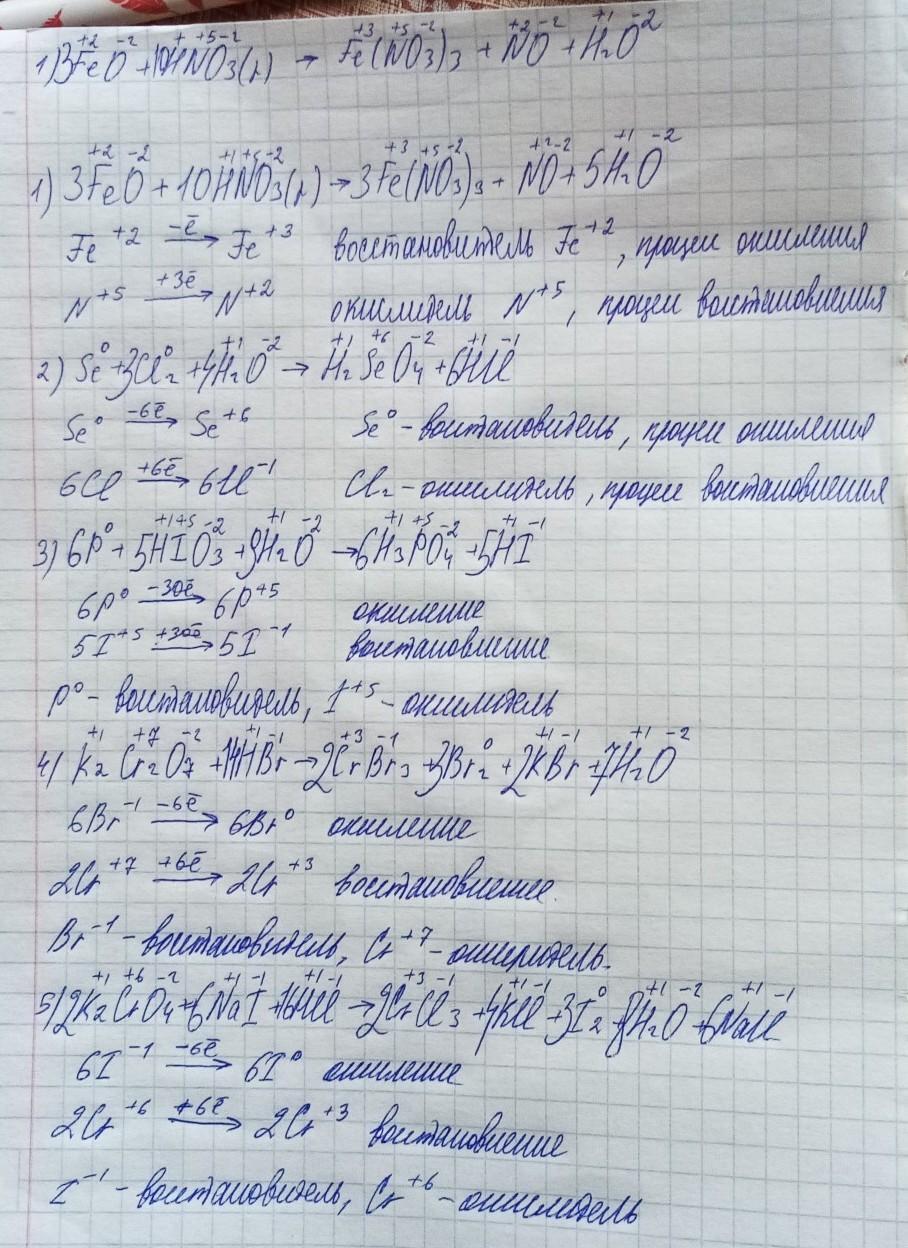 1) 3Fe⁺²O⁻² + 10H⁺N⁺⁵O₃⁻²(р) → Fe⁺³(N⁺⁵O₃⁻²)₃ + N⁺²O⁻² + H₂⁺¹O⁻²
1) 3Fe⁺²O⁻² + 10H⁺¹N⁺⁵O₃⁻²(р) → 3Fe⁺³(N⁺⁵O₃⁻²)₃ + N⁺²O⁻² + 5H₂⁺¹O⁻²
Fe⁺² –ē→ Fe⁺³ восстановитель Fe⁺², процесс окисления
N⁺⁵ +3ē→ N⁺² окислитель N⁺⁵, процесс восстановления
2) Se⁰ + 3Cl₂⁰ + 4H₂⁺¹O⁻² → H₂⁺¹Se⁺⁶O₄⁻² + 6H⁺¹Cl⁻¹
Se⁰ –6ē→ Se⁺⁶ Se⁰ - восстановитель, процесс окисления
6Cl +6ē→ 6Cl⁻¹ Cl₂ - окислитель, процесс восстановления
3) 6P⁰ + 5H⁺¹I⁺⁵O₃⁻² + 9H₂⁺¹O⁻² → 6H₃⁺¹P⁺⁵O₄⁻² + 5H⁺¹I⁻¹
6P⁰ –30ē→ 6P⁺⁵ окисление
5I⁺⁵ +30ē→ 5I⁻¹ восстановление
P⁰ - восстановитель, I⁺⁵ - окислитель
4) K₂⁺¹Cr₂⁺⁷O₇⁻² + 14H⁺¹Br⁻¹ → 2Cr⁺³Br₃⁻¹ + 3Br₂⁰ + 2K⁺¹Br⁻¹ + 7H₂⁺¹O⁻²
6Br⁻¹ –6ē→ 6Br⁰ окисление
2Cr⁺⁷ +6ē→ 2Cr⁺³ восстановление.
Br⁻¹ - восстановитель, Cr⁺⁷ - окислитель.
5) 2K₂⁺¹Cr⁺⁶O₄⁻² + 6Na⁺¹I⁻¹ + 16H⁺¹Cl⁻¹ → 2Cr⁺³Cl₃⁻¹ + 4KCl + 3I₂⁰ + 8H₂⁺¹O⁻² + 6Na⁺¹Cl⁻¹
6I⁻¹ –6ē→ 6I⁰ окисление
2Cr⁺⁶ +6ē→ 2Cr⁺³ восстановление
I⁻¹ - восстановитель, Cr⁺⁶ - окислитель